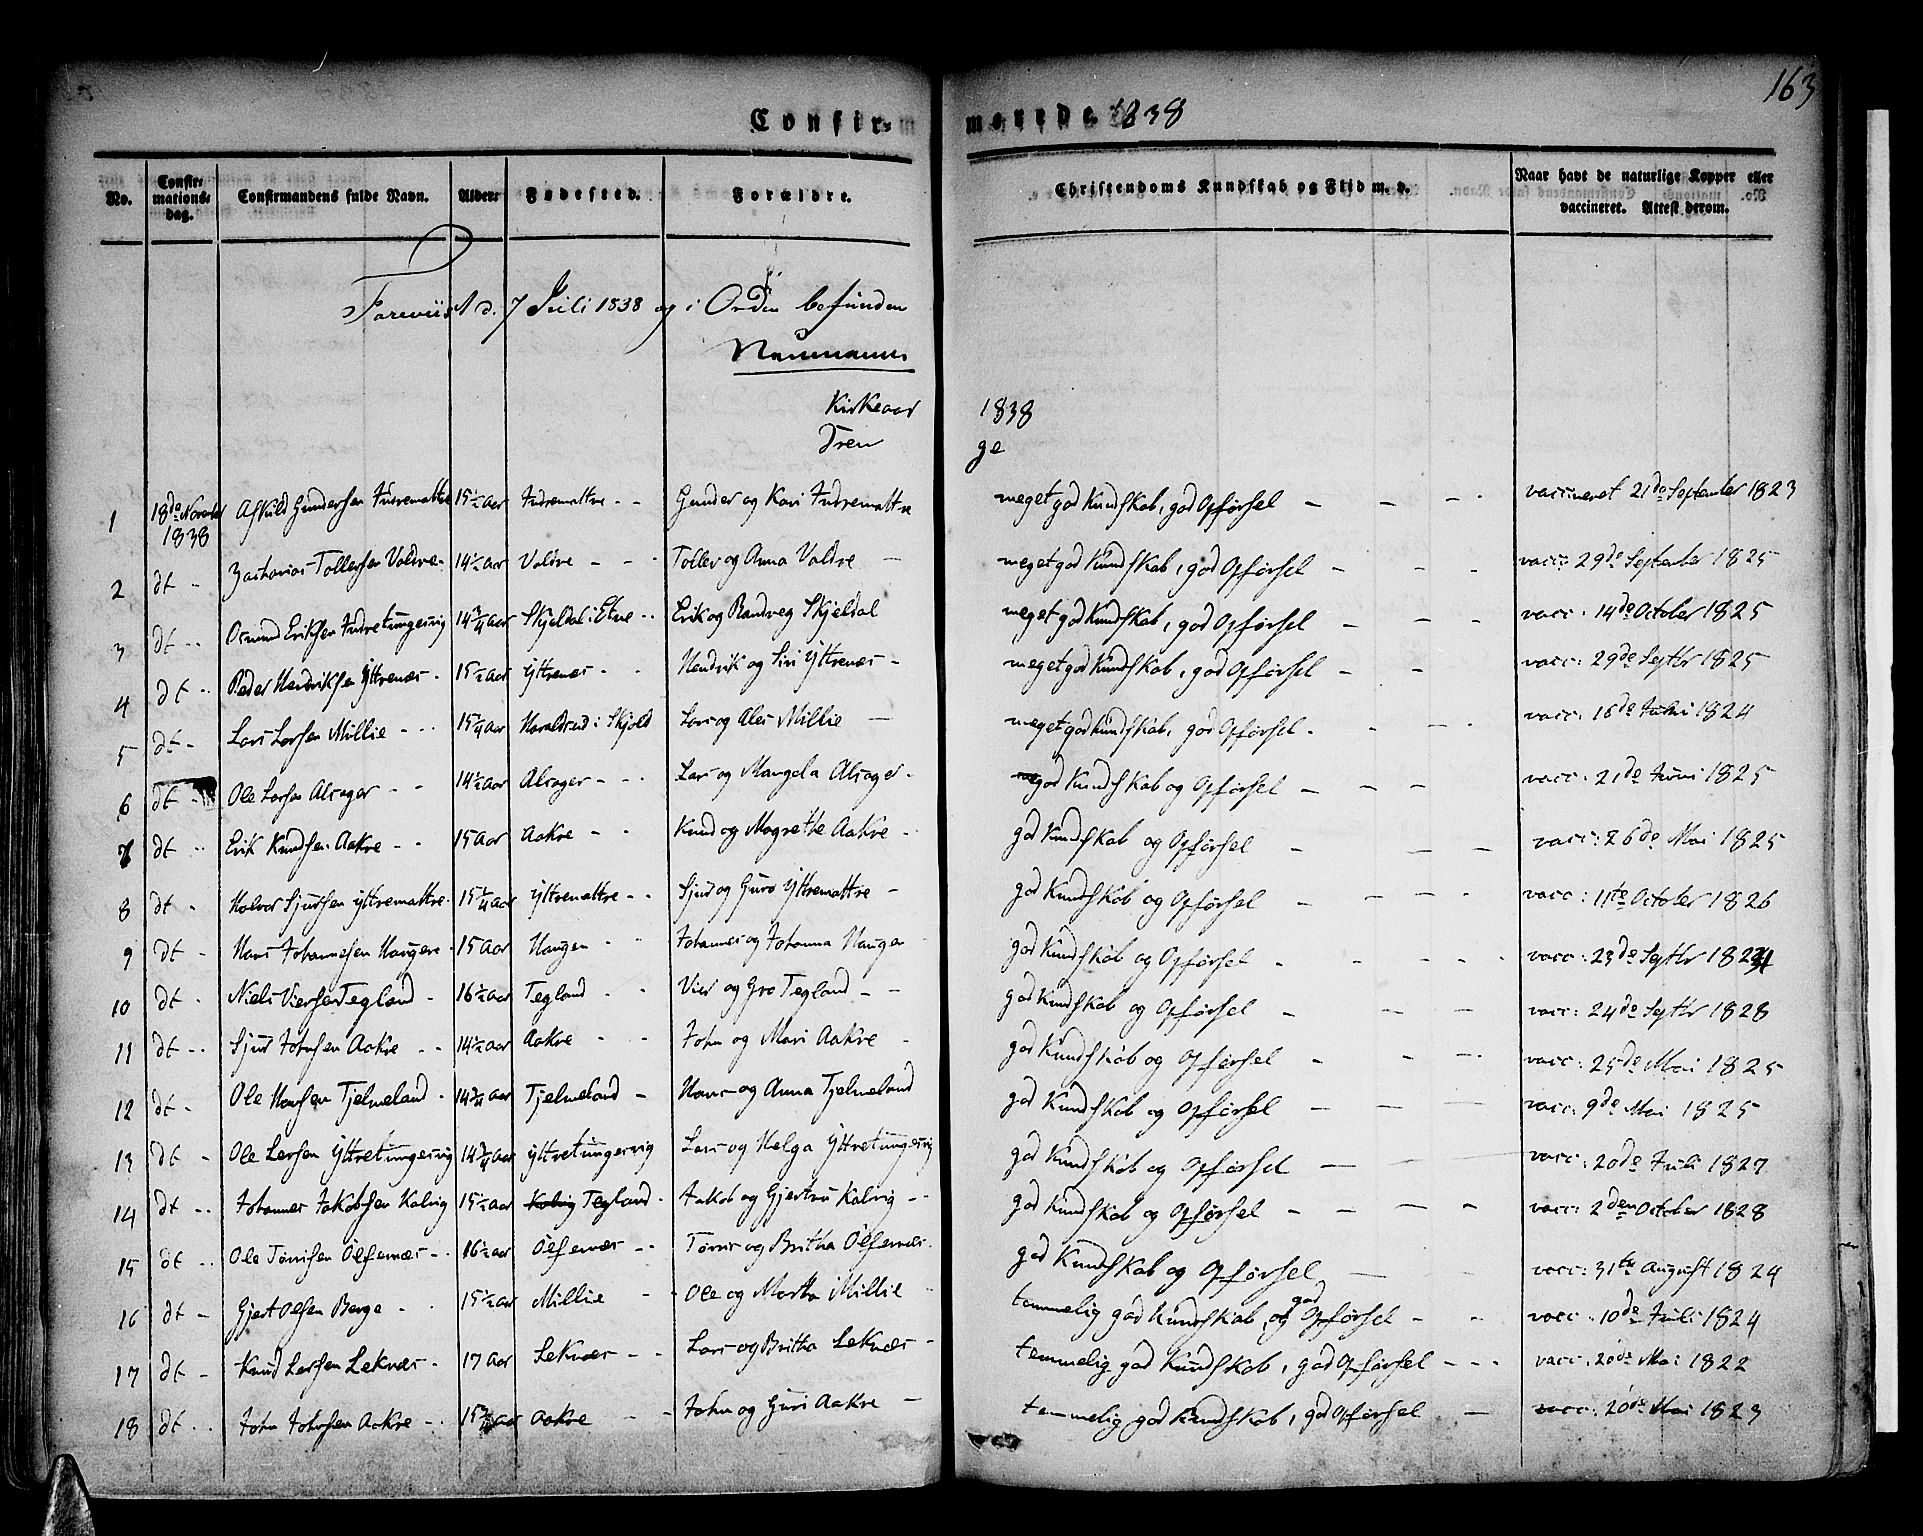 163
Confirmerede 1838
No. Confirmationsdag. Confirmandens fulde Navn. Alder. Fødested. Forældre. Christendoms Kundskab og Flid m. v. Naar havt de naturlige Kopper eller vaccineret. Attest derom.
Foreviist d. 7 Juli 1838 og i Orden befunden
Neumann
Kirkeaar 1838
Drenge
1 18de November 1838 Askild Gundersen Indremattre 15½ Aar Indremattre - - Gunder og Kari Indremattre meget god Kundskab, god Opførsel - - - vaccineret 21de September 1823
2 dt - Zacharias Tollefsen Valdre - 14½ Aar Valdre - - - Tollev og Anna Valdre - meget god Kundskab, god Opførsel - - - vacc: 29de September 1825
3 dt - - Osmund Eriksen Indretungesvig 14¾ Aar Skjeldal i Etne - - Erik og Randveg Skjeldal meget god Kundskab, god Opførsel - - - vacc: 14de October 1825
4 dt - - Peder Hendriksen Yttrenæs - 15½ Aar Yttrenæs - - Hendrik og Siri Yttrenæs - meget god Kundskab, god Opførsel - - vacc: 29de Septbr 1825
5 dt - Lars Larsen Millie - - - 15¼ Aar Haraldseid i Skjold Lars og Ales Millie - meget god Kundskab, god Opførsel - - - - vacc: 16de Juni 1824
6 dt - Ole Larsen Alsager - - 14½ Aar Alsager - - - Lars og Mangela Alsager - god Kundskab og Opførsel - - - vacc: 21de Juni 1825
7 dt - - Erik Knudsen Aakre - - 15 Aar Aakre - - Knud og Magrethe Aakre - god Kundskab og Opførsel - - - vacc: 26de Mai 1825
8 dt - Halvor Sjursen Yttremattre - 15¼ Aar Yttremattre - - Sjur og Guro Yttremattre - god Kundskab og Opførsel - - - - vacc: 11te October 1826
9 dt - Hans Johannesen Haugen - 15 Aar Haugen - - Johannes og Johanna Haugen god Kundskab og Opførsel - - - - vacc: 23de Septbr 1824
10 dt - Niels Viersen Tegland - 16½ Aar Tegland - - Vier og Gro Tegland - - god Kundskab og Opførsel - - - vacc: 24de Septbr 1828
11 dt - - Sjur Johnsen Aakre - - 14½ Aar Aakre - - John og Mari Aakre - god Kundskab og Opførsel - - - vacc: 25de Mai 1825
12 dt - Ole Hansen Tjelmeland - 14¾ Aar Tjelmeland - Hans og Anna Tjelmeland god Kundskab og Opførsel - - - vacc: 9de Mai 1825
13 dt - Ole Larsen Yttretungesvig 14¾ Aar Yttretungesvig Lars og Helga Yttretungesvig god Kundskab og Opførsel - - - vacc: 20de Juli 1827
14 dt - - Johannes Jakobsen Kalvig 15½ Aar Kalvig Tegland - Jakob og Gjertru Kalvig - - god Kundskab og Opførsel - - - - vacc: 2den October 1828
15 dt - - Ole Tørrisen Ølfernæs - - 16½ Aar Ølfernæs - - Tørris og Britha Ølfernæs - god Kundskab og Opførsel - - vacc: 31te August 1824
16 dt - Gjert Olsen Berge - - 15½ Aar Millie - - Ole og Martha Millie - temmelig god Kundskab, og god Opførsel - - vacc: 10de Juli 1824
17 dt - Knud Larsen Leknæs - 17 Aar Leknæs - - Lars og Britha Leknæs - temmelig god Kundskab, god Opførsel - - - vacc: 20de Mai 1822
18 dt - - John Johnsen Aakre - - 15¾ Aar Aakre - - John og Guri Aakre - temmelig god Kundskab, god Opførsel - vacc: 20de Mai 1823